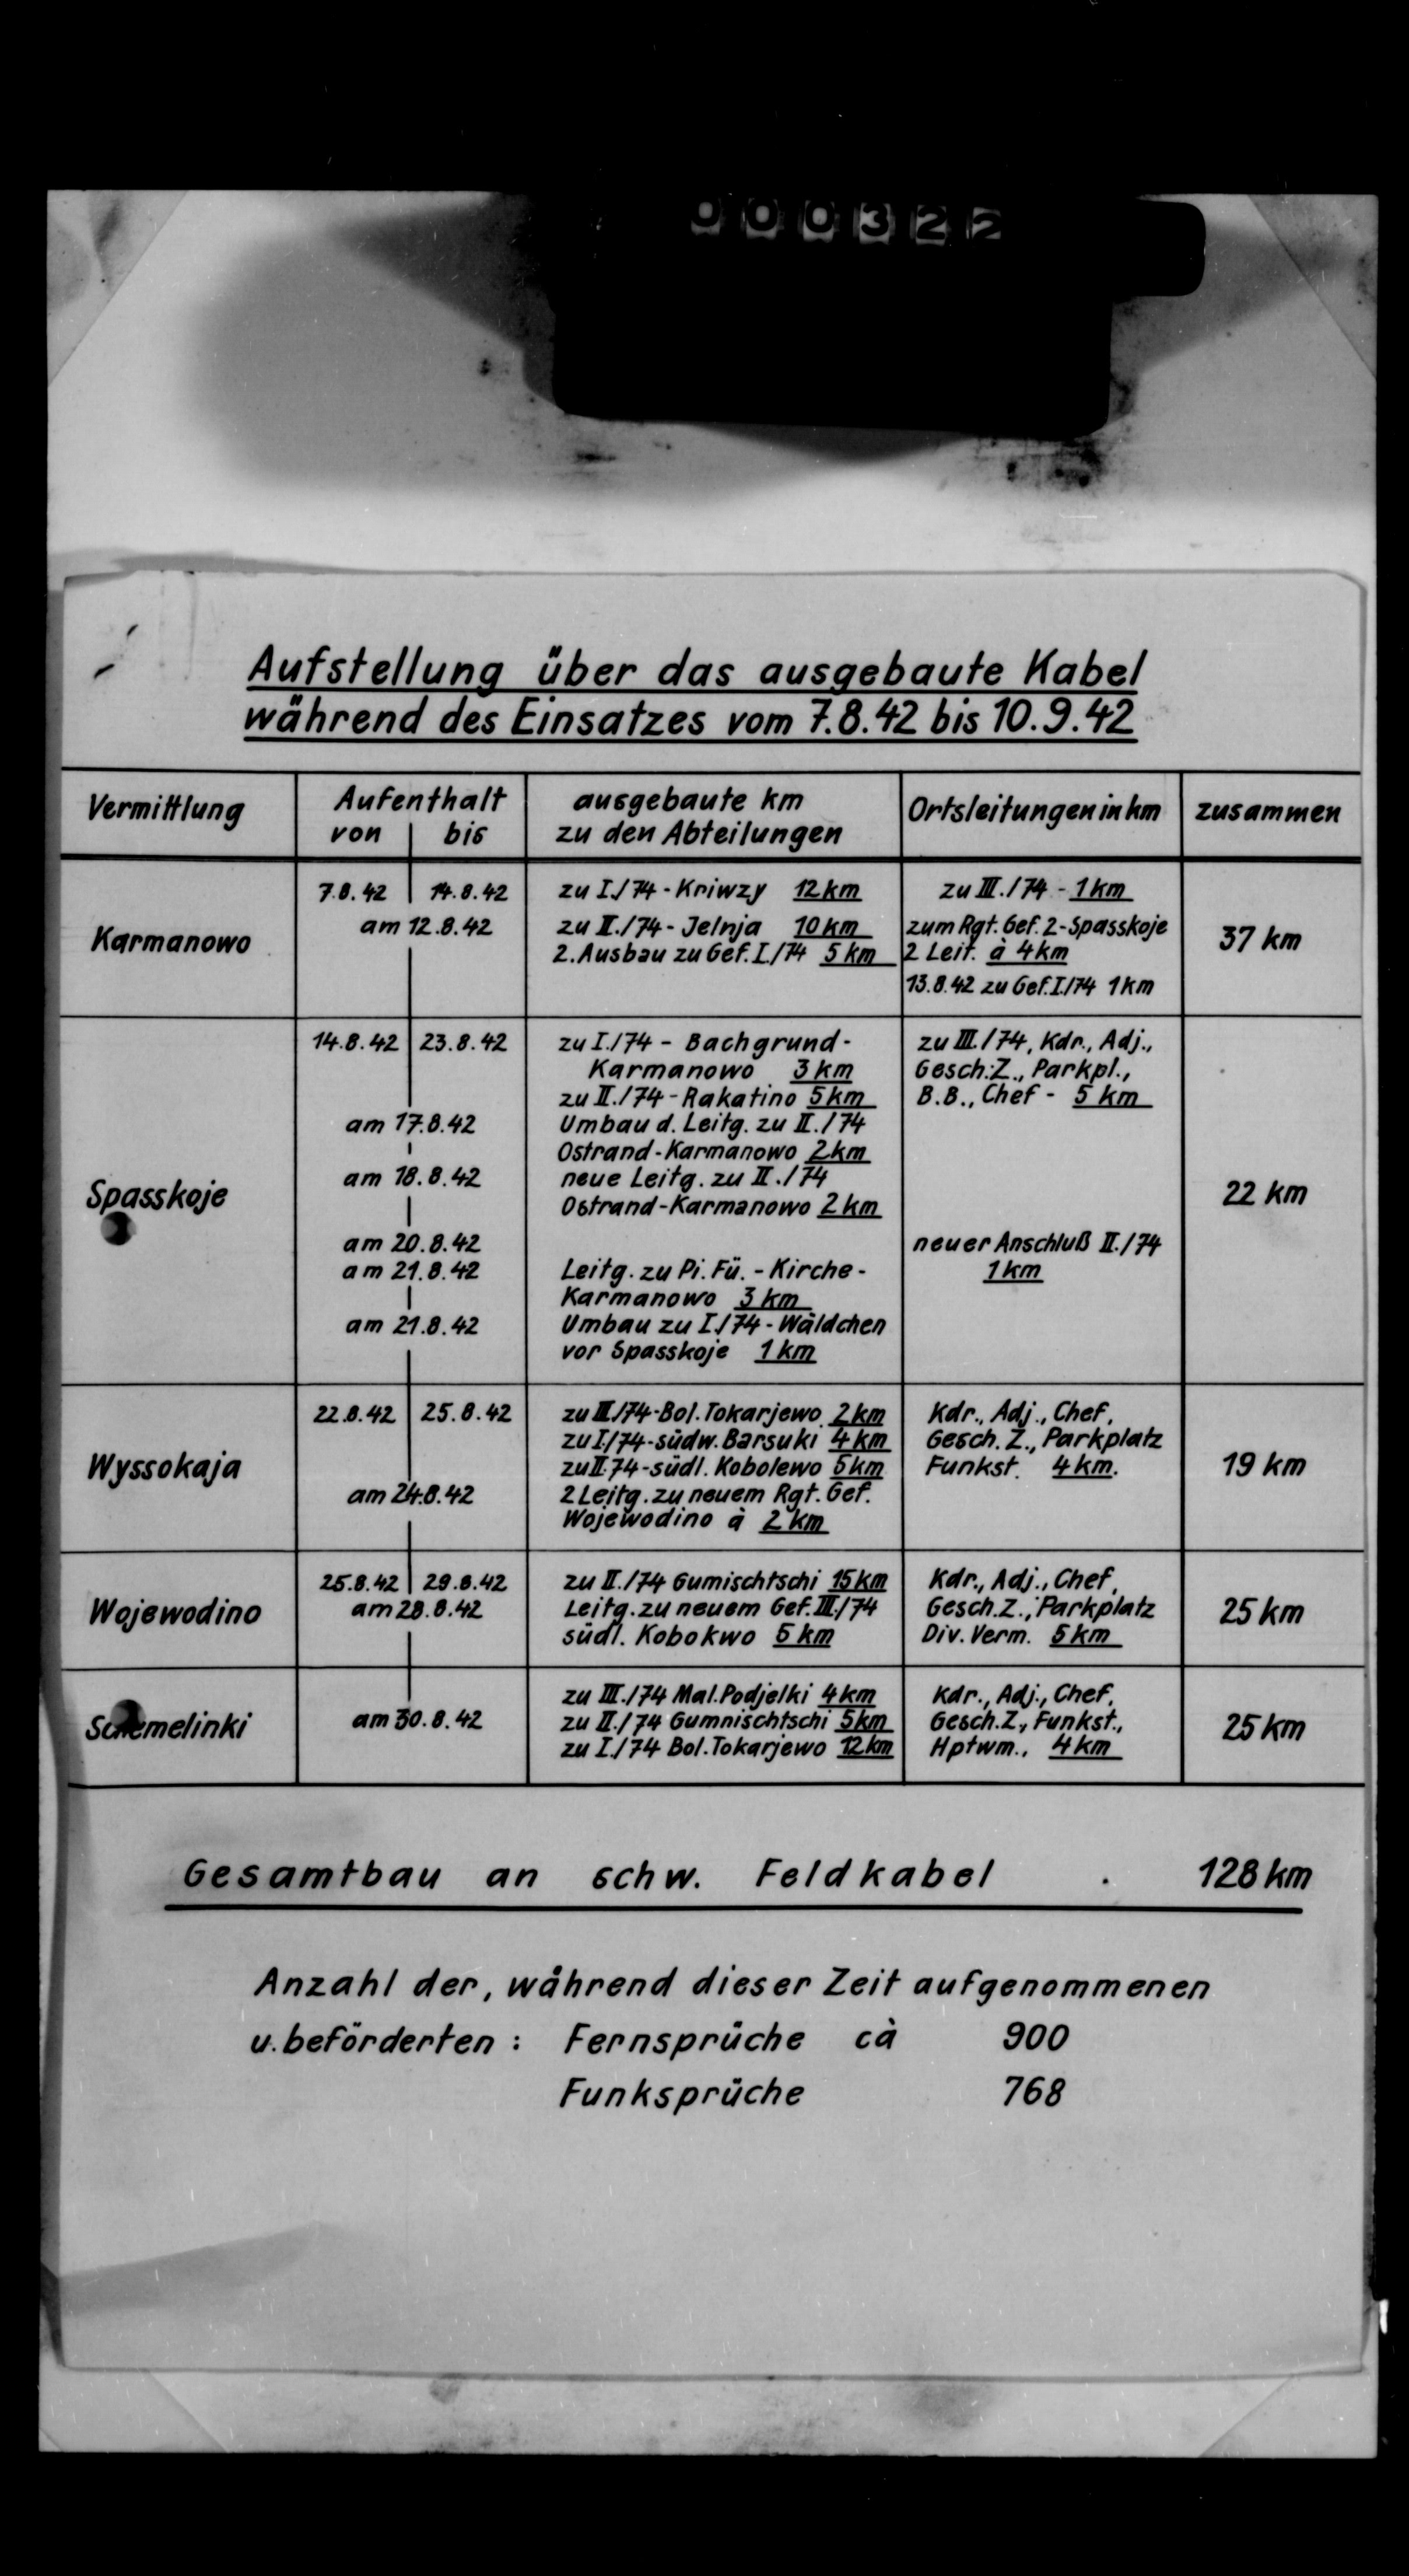 000322
Aufstellung über das ausgebaute Kabel
während des Einsatzes vom 7.8.42 bis 10.9.42
Vermittlung
Aufenthalt
von bis
ausgebaute km
zu den Abteilungen
Ortsleitungen in km
zusammen
Karmanowo
7.8.42 14.8.42
am 12.8.42
zu I./74 - Kriwzy 12 km
zu II./74 - Jelnja 10 km
2. Ausbau zu Gef. I./74 5 km
zu III./74 - 1 km
zum Rgt. Gef. 2 - Spasskoje
2 Leit. à 4 km
13.8.42 zu Gef. I./74 1 km
37 km
Spasskoje
14.8.42 23.8.42
am 17.8.42
am 18.8.42
am 20.8.42
am 21.8.42
am 21.8.42
zu I./74 - Bachgrund-
Karmanowo 3 km
zu II./74 - Rakatino 5 km
Umbau d. Leitg. zu II./74
Ostrand-Karmanowo 2 km
neue Leitg. zu II./74
Ostrand-Karmanowo 2 km
Leitg. zu Pi. Fü. - Kirche-
Karmanowo 3 km
Umbau zu I./74 - Wäldchen
vor Spasskoje 1 km
zu III./74, Kdr., Adj.,
Gesch.Z., Parkpl.,
B.B., Chef - 5 km
neuer Anschluß II./74
1 km
22 km
Wyssokaja
22.8.42 25.8.42
am 24.8.42
zu III./74-Bol. Tokarjewo 2 km
zu I./74-südw. Barsuki 4 km
zu II.74-südl. Kobolewo 5 km
2 Leitg. zu neuem Rgt. Gef.
Wojewodino à 2 km
Kdr., Adj., Chef,
Gesch. Z., Parkplatz
Funkst. 4 km.
19 km
Wojewodino
25.8.42 29.8.42
am 28.8.42
zu II./74 Gumischtschi 15 km
Leitg. zu neuem Gef. III./74
südl. Kobokwo 5 km
Kdr., Adj., Chef,
Gesch.Z., Parkplatz
Div. Verm. 5 km
25 km
am 30.8.42
zu III./74 Mal. Podjelki 4 km
zu II./74 Gumnischtschi 5 km
zu I./74 Bol. Tokarjewo 12 km
Kdr., Adj., Chef,
Gesch.Z., Funkst.,
Hptwm., 4 km
25 km
Gesamtbau an schw. Feldkabel . 128 km
Anzahl der, während dieser Zeit aufgenommenen
u. beförderten : Fernsprüche cà 900
Funksprüche 768